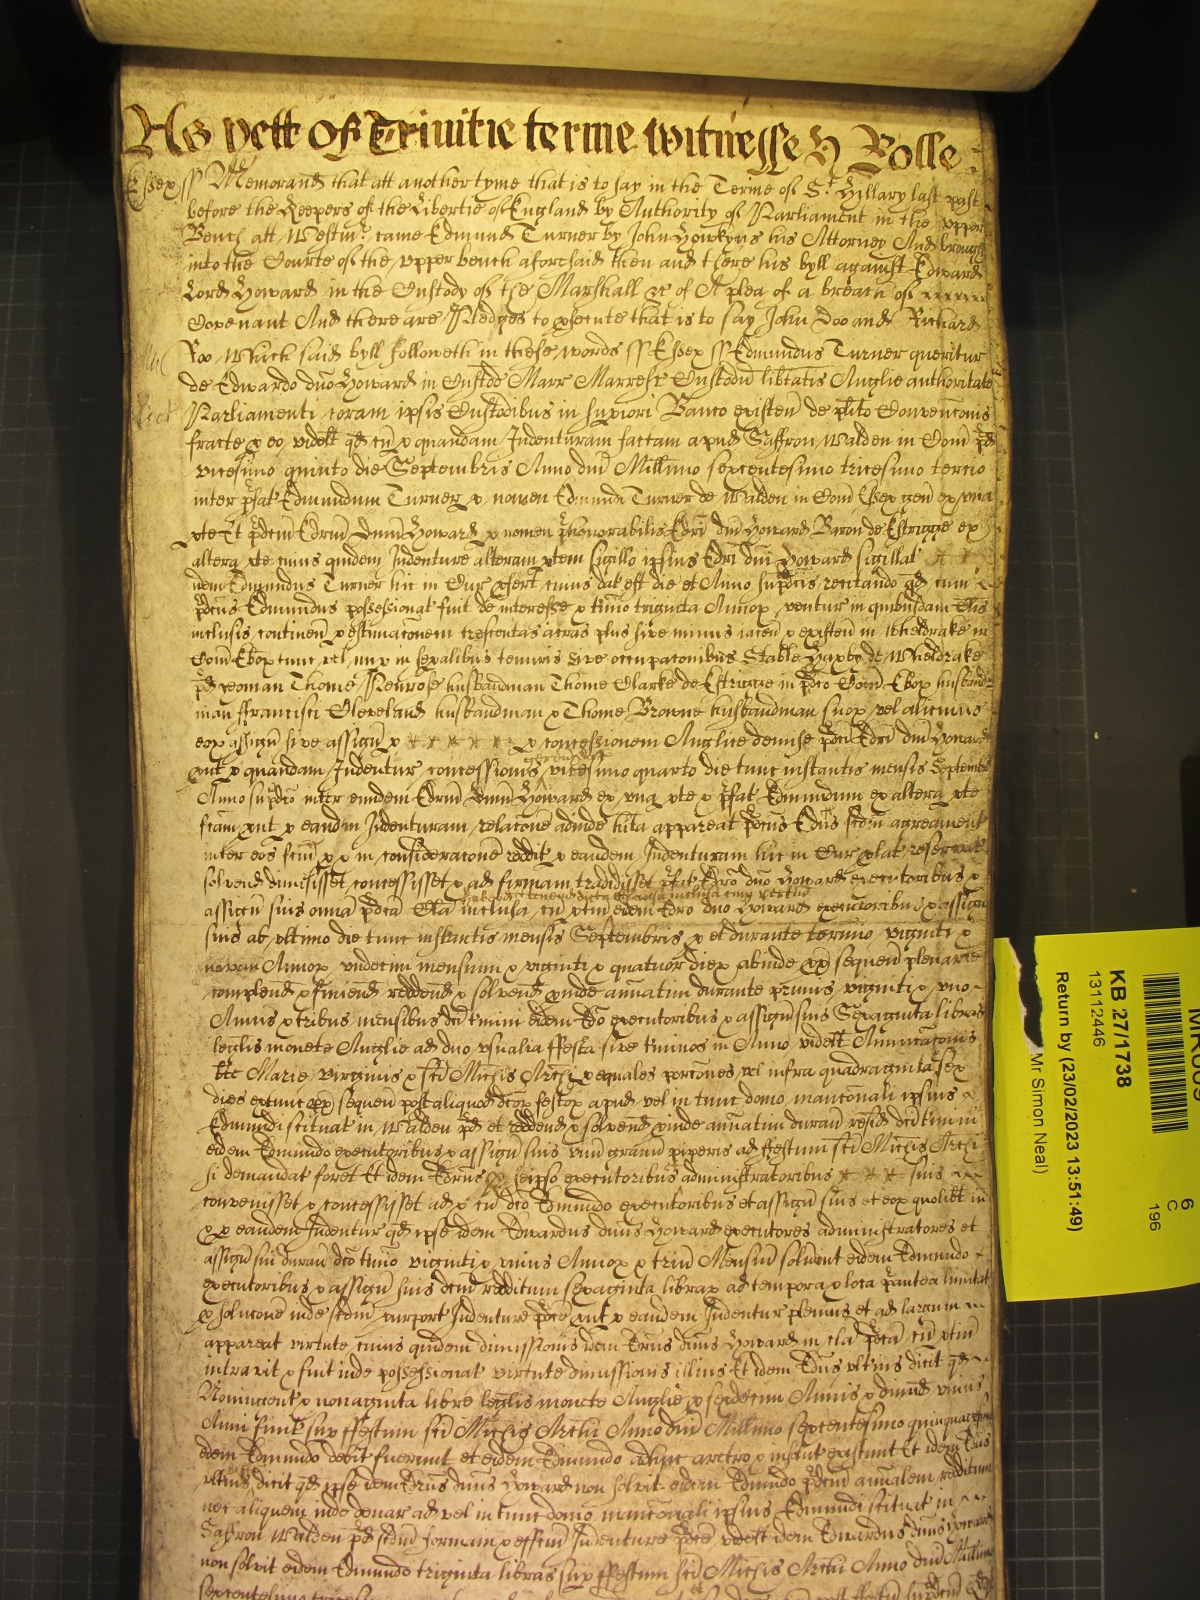 As yett Of Trinitie terme witnesse H Rolle
Essex ss Memorand that att another tyme that is to say in the Terme of St Hillary last past
before the Keepers of the Libertie of England by Authority of Parliament in the upper
Bench att Westmr came Edmund Turner by John Howkyns his Attorney And brought
into the Courte of the upper bench aforesaid then and there his byll against Edward
Lord Howard in the Custody of the Marshall &c of A plea of a breach of
Covenant And there are Pledges to psecute that is to say John Doo and Richard
Roo Which said byll followeth in these words ss Essex ss Edmundus Turner queritur
de Edwardo duo Howard in Custod Marr Marresc Custodu libtatis Anglie authoritate
Parliamenti coram ipsis Custodibus in supiori Banco existen de plito Convenconis
fracte p eo videlt qd cu p quandam Indenturam factam apud Saffron Walden in Com pd
vicesimo quinto die Septembris Anno dni Millimo sexcentesimo tricesimo tercio
inter pfat Edmundum Turner p nomen Edmundi Turner de Walden in Com Essex gen ex una
pte et pdcm Edrum Dnum Howard p nomen phonorabilis Edri dni Howard Baron de Estrigge ex
altera pte cuius quidem Indenture alteram ptem sigillo ipsius Edri dni Howard sigillat
idem Edmundus Turner hic in Cur pfert cuius dat est die et Anno supdcis recitando qd cum
pdcus Edmundus possessionat fuit de interesse p tmino triginta Annox ventur in quibusdam Clis
inclusis continen p estimaconem trescentas acras plus sive minus iacen & existen in Wheldrake in
Com Ebox tunc vel nup in sepalibus tenuris sive occupaconibus Stable Haxby de Wheldrake
pd yeoman Thome Penrose husbandman Thome Clarke de Estrigge in pdco Com Ebox husband
man ffrancisci Cleveland husbandman & Thome Browne husbandman suox vel alicuius
eox assign sive assign p concessionem Anglice demise pdci Edri dni Howard
put p quandam Indentur concessionis vicesimo quarto die tunc instantis mensis Septembr
Anno supdco inter eundem Edrum Dnum Howard ex una pte & pfat Edmundum ex altera pte
fcam put p eandm Indenturam relacone adinde hita appareat pdcus Edus scdm agreament
inter eos fcm p & in consideracone reddit p eandem Indenturam hic in Cur plat reservat
solvend dimisisset concessisset & ad firmam tradidisset pfat Edro duo Howard executoribus &
assign suis omnia pdca Cla inclusa cu ptin eidem Edro duo Howard executoribus & assign
suis ab ultimo die tunc instantis mensis Septembris & et durante termino viginti &
novem Annox undecim mensium & viginti & quatuor diex abinde px sequen plenarie
complend & finiend reddend & solvend inde annatim durante primis viginti & uno
Annis & tribus mensibus dci tmini eidem Edo executoribus & assign suis Sexaginta libras
leglis monete Anglie ad duo usualia ffesta sive tminos in Anno videlt Annunciaconis
bte Marie virginis & sci Michis Archi p equales porcones vel infra quadraginta sex
dies extunc px sequen post aliquod dcox festox apud vel in tunc domo mancionali ipsius
Edmundi scituat in Walden pd et reddend & solvend inde annatim duran resid dci tmini
eidem Edmundo executoribus & assign suis unu granu piperis ad ffestum sci Michis Archi
si demandat foret Et idem Edrus p seipso executoribus administratoribus suis
convenisset & concessisset ad & cu dco Edmundo executoribus et assign suis et eox quolibt in
& p eandem Indentur qd ipse idem Edwardus dnus Howard executores administratores et
assign sui duran dco tmino viginti & unius Annox & triu Mensiu solvent eidem Edmundo
executoribus & assign suis dcm redditum sexaginta librax ad tempora & loca pantea limitat
p solucone inde scdm purport Indenture pdce put p eandem Indentur plenius et ad largum
appareat virtute cuius quidem dimissionis idem Edrus dnus Howard in cla pdca cu ptin
intravit & fuit inde possessionat virtute dimissionis illius Et idem Edus ulterius dicit qd
Nonincent & nonaginta libre leglis monete Anglie p sexdecim Annis & dimid unius
Anni finit sup ffestum sci Michis Archi Anno dni Millimo sexcentesimo quinquagesimo
eidem Edmundo debit fuerunt et eidem Edmundo adhuc aretro & insolut existunt Et idem Edus
ulterius dicit qd ipse idem Edrus dnus Howard non solvit eidem Edmundo pdcm annalem redditum
nec aliquem inde denar ad vel in tunc domo mancionali ipsius Edmundi scituat in
Saffron Walden pd scdm formam & effcm Indenture pdce videlt idem Edwardus dnus Howard
non solvit eidem Edmundo triginta libras sup ffestum sci Michis Archi Anno dni Millimo
KB 27/1738
13112446
Return by (23/02/2023 13:51:49)
Mr Simon Neal)
6
C
196